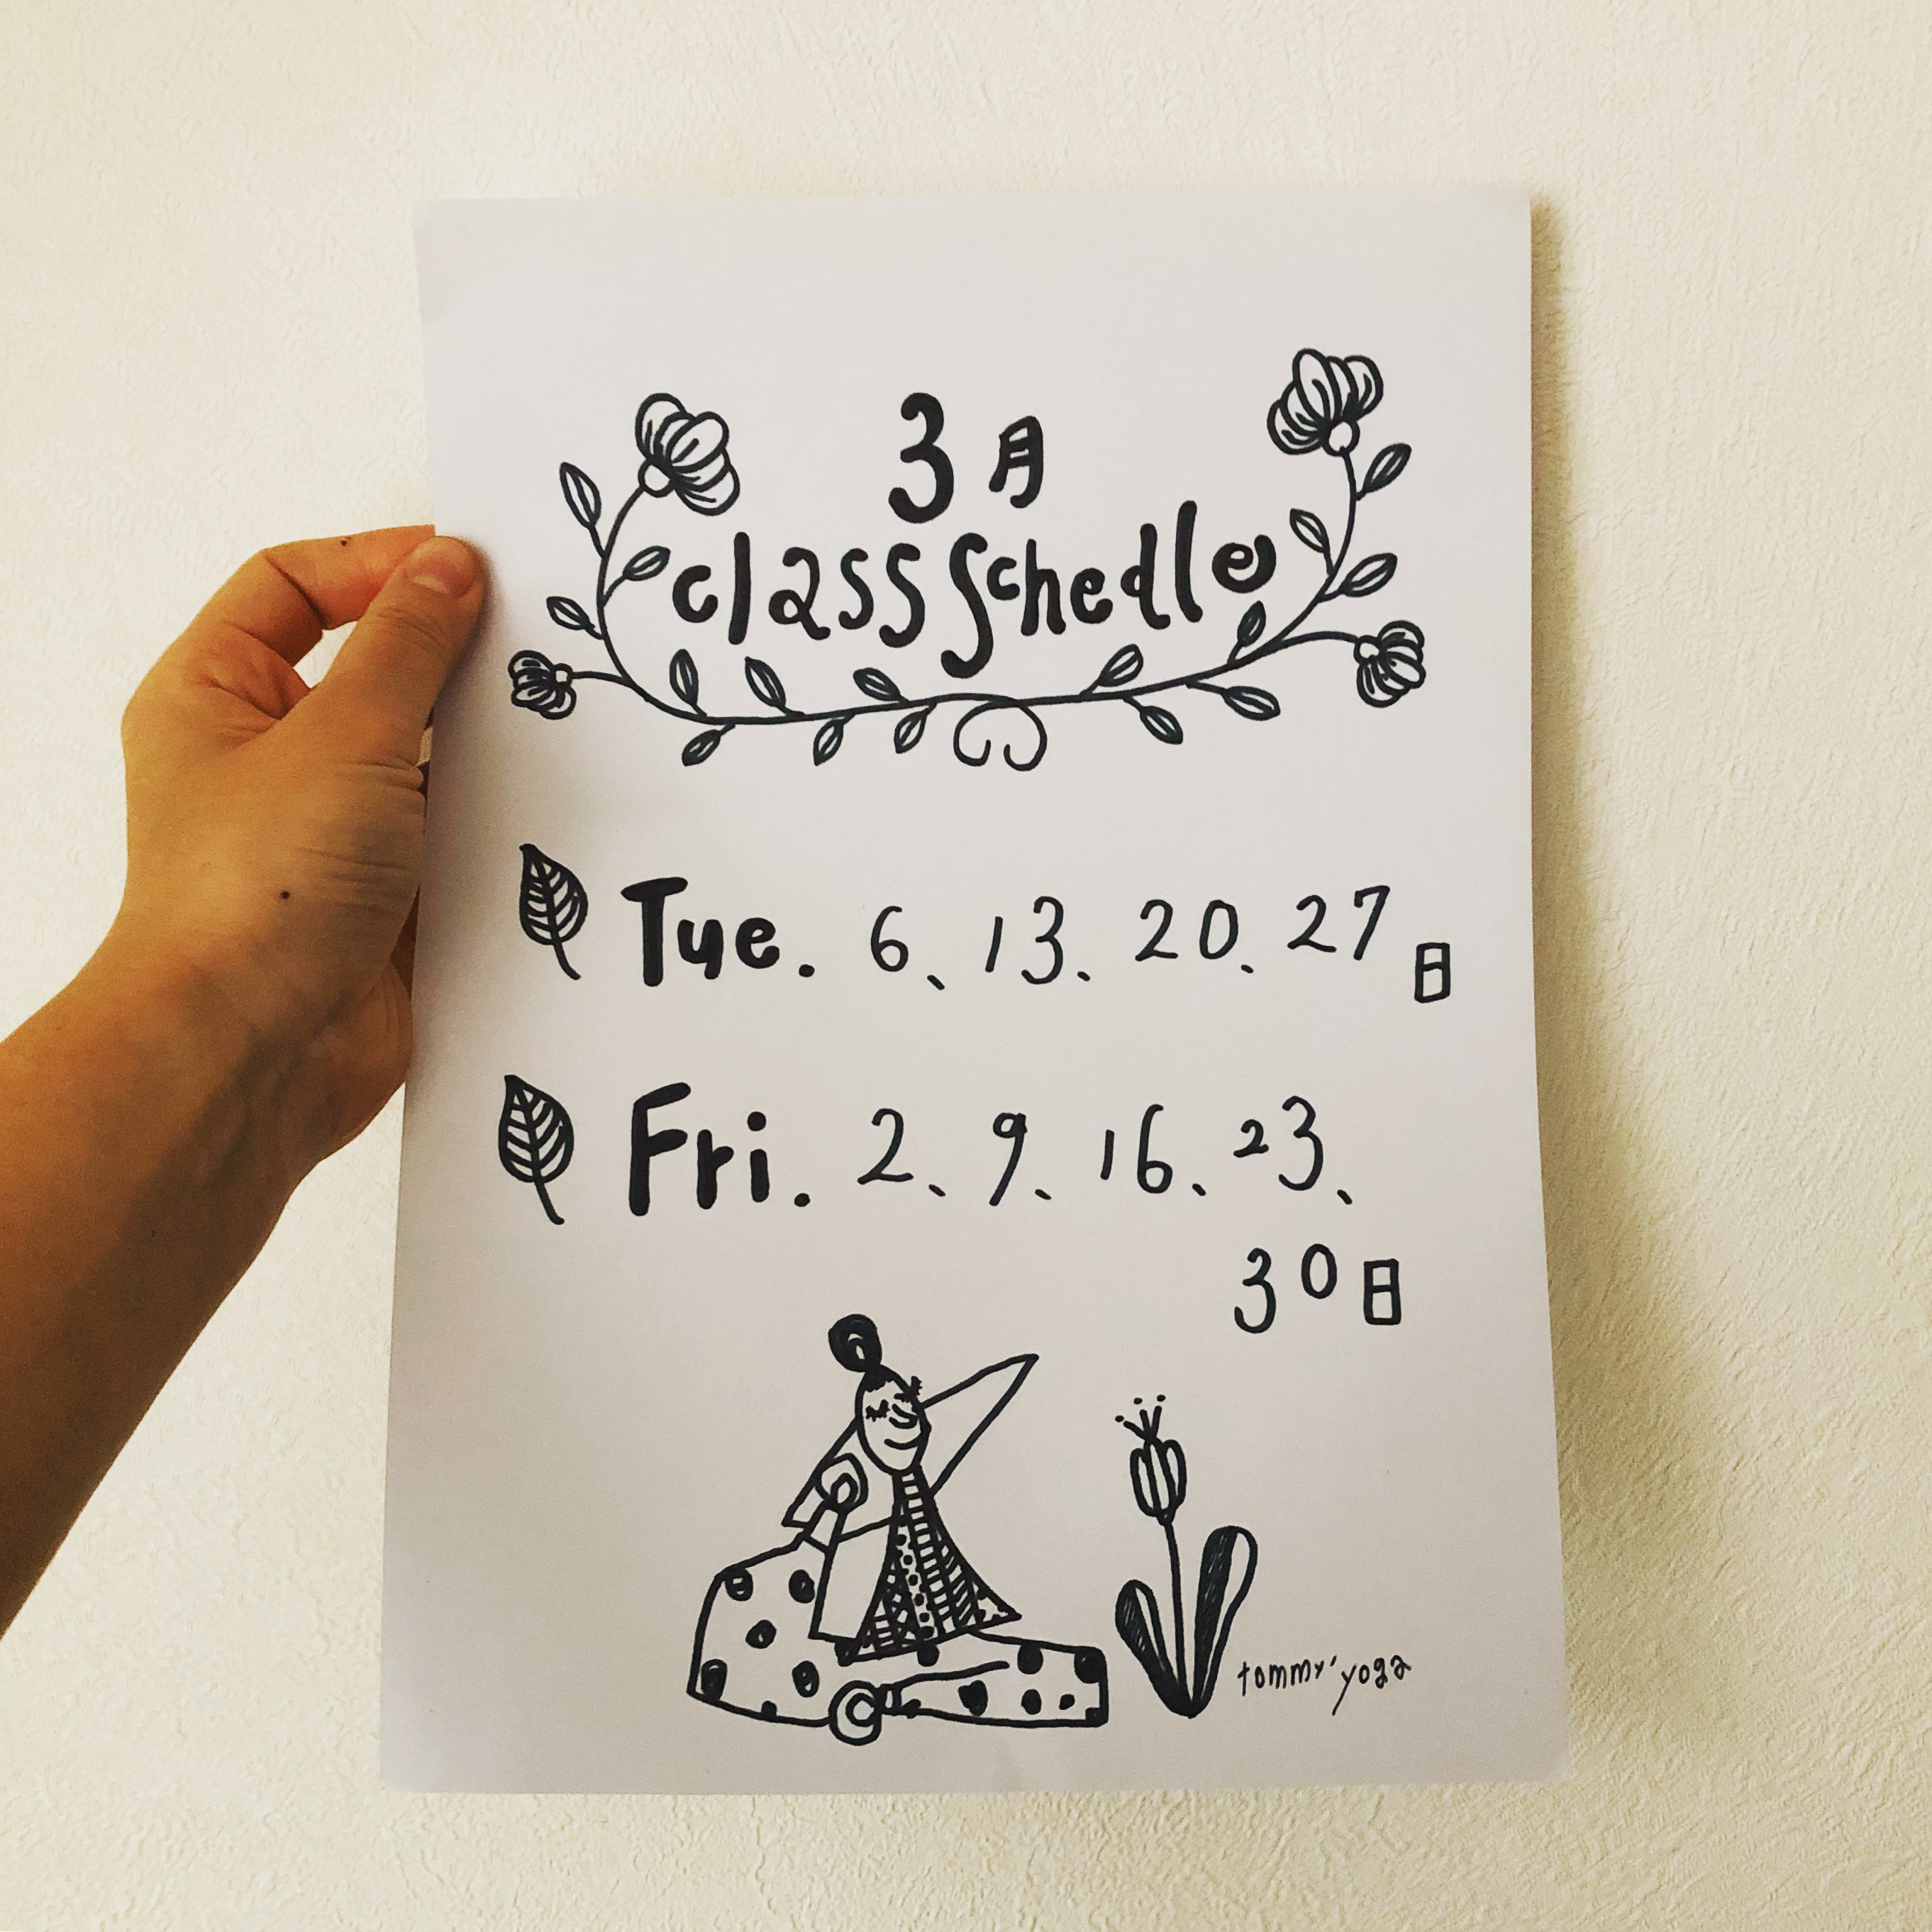 3月
class schedle
Tue. 6、13、20、27日
Fri. 2、9、16、23、
30日
tommy'yoga